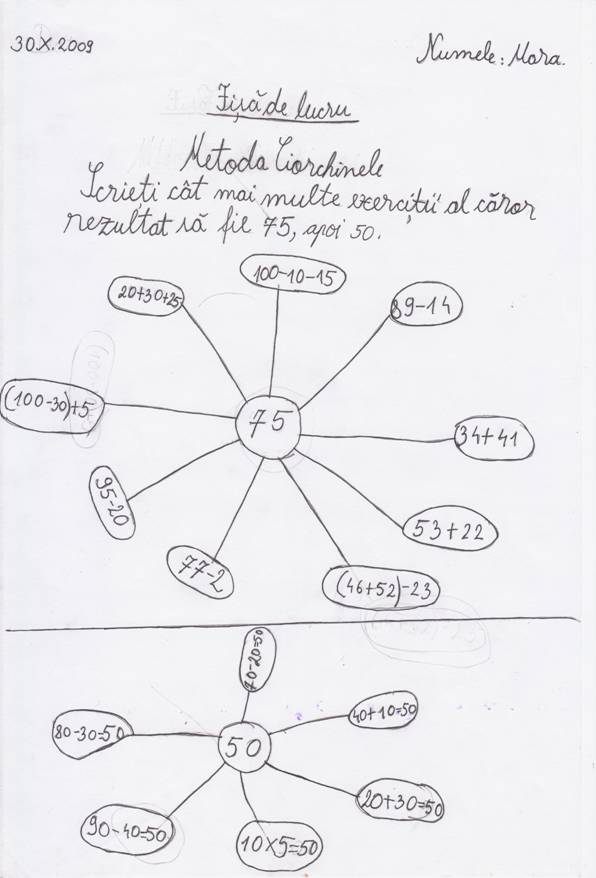 30X.2009
Numele: Mara.
Fișă de lucru
Metoda Ciorchinele
Scrieți cât mai multe exerciții al căror
rezultat să fie 75, apoi 50.
100-10-15
20+30+25
89-14
(100-30)+5
75
34+41
95-20
53+22
77-2
(46+52)-23
70-20=50
40+10=50
80-30=50
50
20+30=50
90-40=50
10×5=50